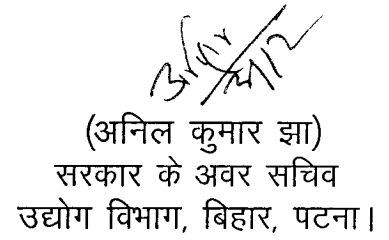 (अनिल कुमार झा)
सरकार के अवर सचिव
उद्योग विभाग, बिहार, पटना।